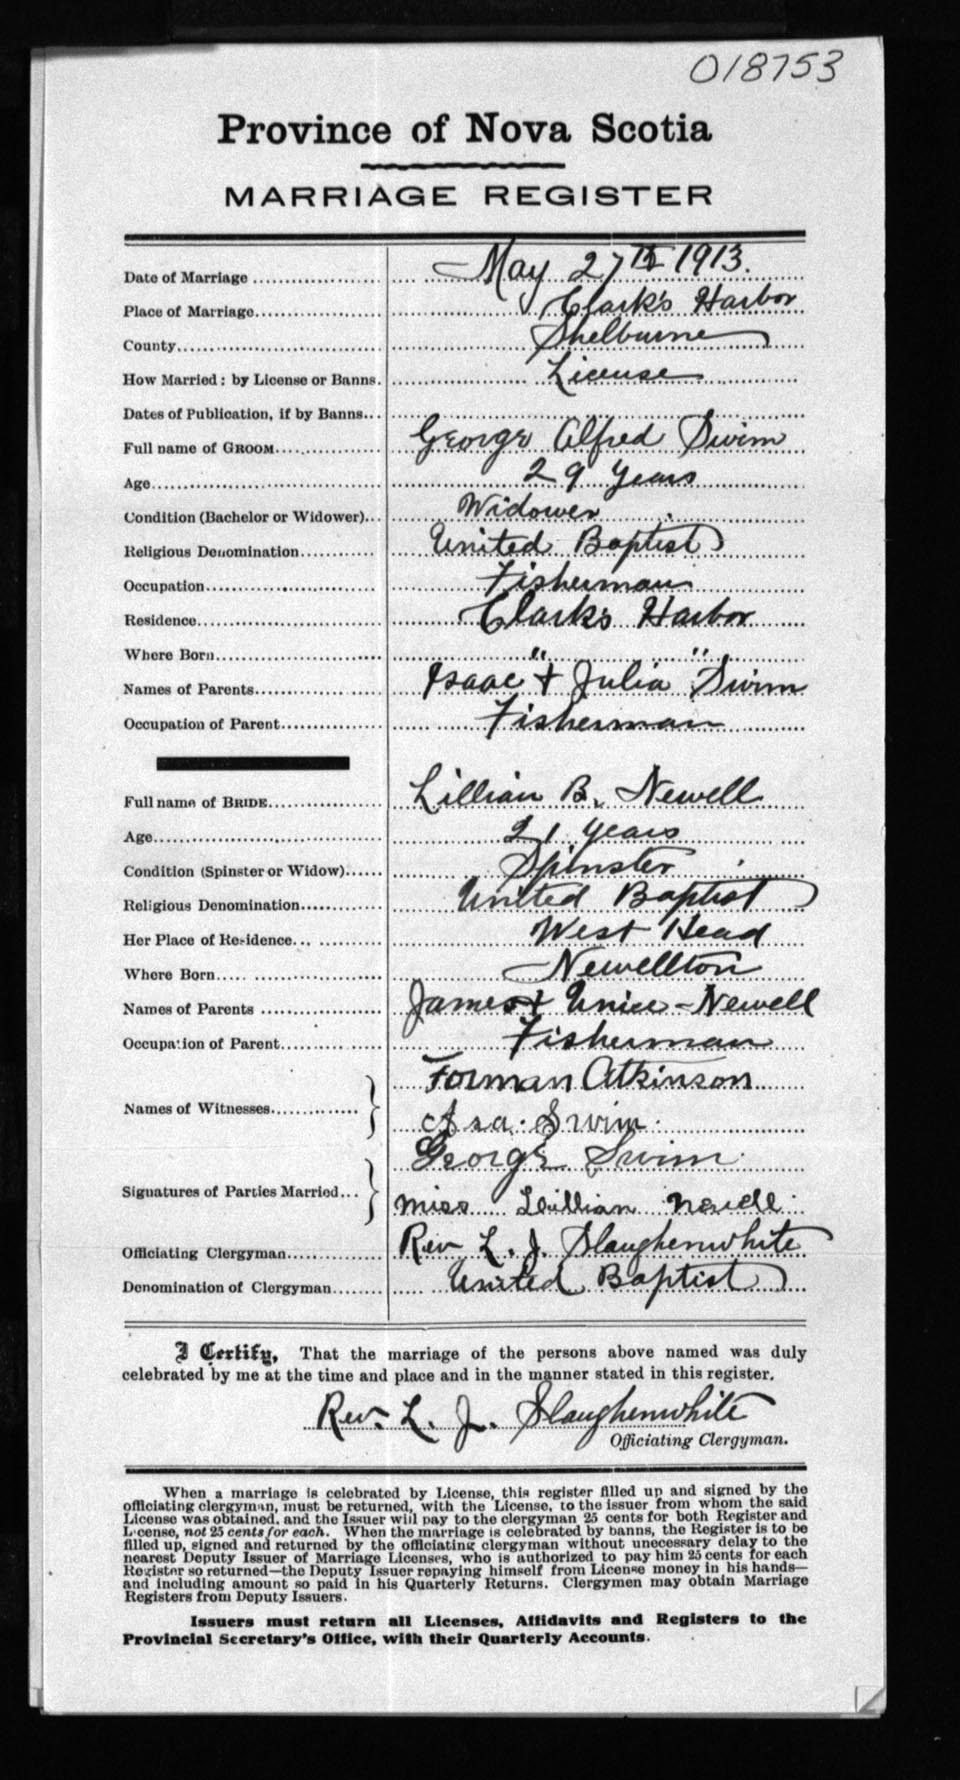 018753
Province of Nova Scotia
MARRIAGE REGISTER
Date of Marriage .................. May 27th 1913.
Place of Marriage.................. Clark's Harbor
County.................. Shelburne
How Married: by License or Banns. License
Dates of Publication, if by Banns...
Full name of GROOM.................. George Alfred Swim
Age.................. 29 years
Condition (Bachelor or Widower)... Widower
Religious Denomination............ United Baptist
Occupation.................. Fisherman
Residence.................. Clark's Harbor
Where Born.................. " "
Names of Parents.................. Isaac + Julia Swim
Occupation of Parent............... Fisherman
Full name of BRIDE.................. Lillian B. Newell
Age.................. 21 years
Condition (Spinster or Widow)...... Spinster
Religious Denomination............ United Baptist
Her Place of Residence............ West Head
Where Born.................. Newellton
Names of Parents .................. James + Unice Newell
Occupation of Parent............... Fisherman
Names of Witnesses............... Forman Atkinson
Asa. Swim.
George Swim
Signatures of Parties Married...
Miss Lillian Newell
Officiating Clergyman............... Rev L. J. Slaughenwhite
Denomination of Clergyman......... United Baptist
I Certify, That the marriage of the persons above named was duly
celebrated by me at the time and place and in the manner stated in this register.
Rev. L. J. Slaughenwhite
Officiating Clergyman.
When a marriage is celebrated by License, this register filled up and signed by the
officiating clergyman, must be returned, with the License, to the issuer from whom the said
License was obtained, and the Issuer will pay to the clergyman 25 cents for both Register and
License, not 25 cents for each. When the marriage is celebrated by banns, the Register is to be
filled up, signed and returned by the officiating clergyman without unecessary delay to the
nearest Deputy Issuer of Marriage Licenses, who is authorized to pay him 25 cents for each
Register so returned—the Deputy Issuer repaying himself from License money in his hands—
and including amount so paid in his Quarterly Returns. Clergymen may obtain Marriage
Registers from Deputy Issuers.
Issuers must return all Licenses, Affidavits and Registers to the
Provincial Secretary's Office, with their Quarterly Accounts.